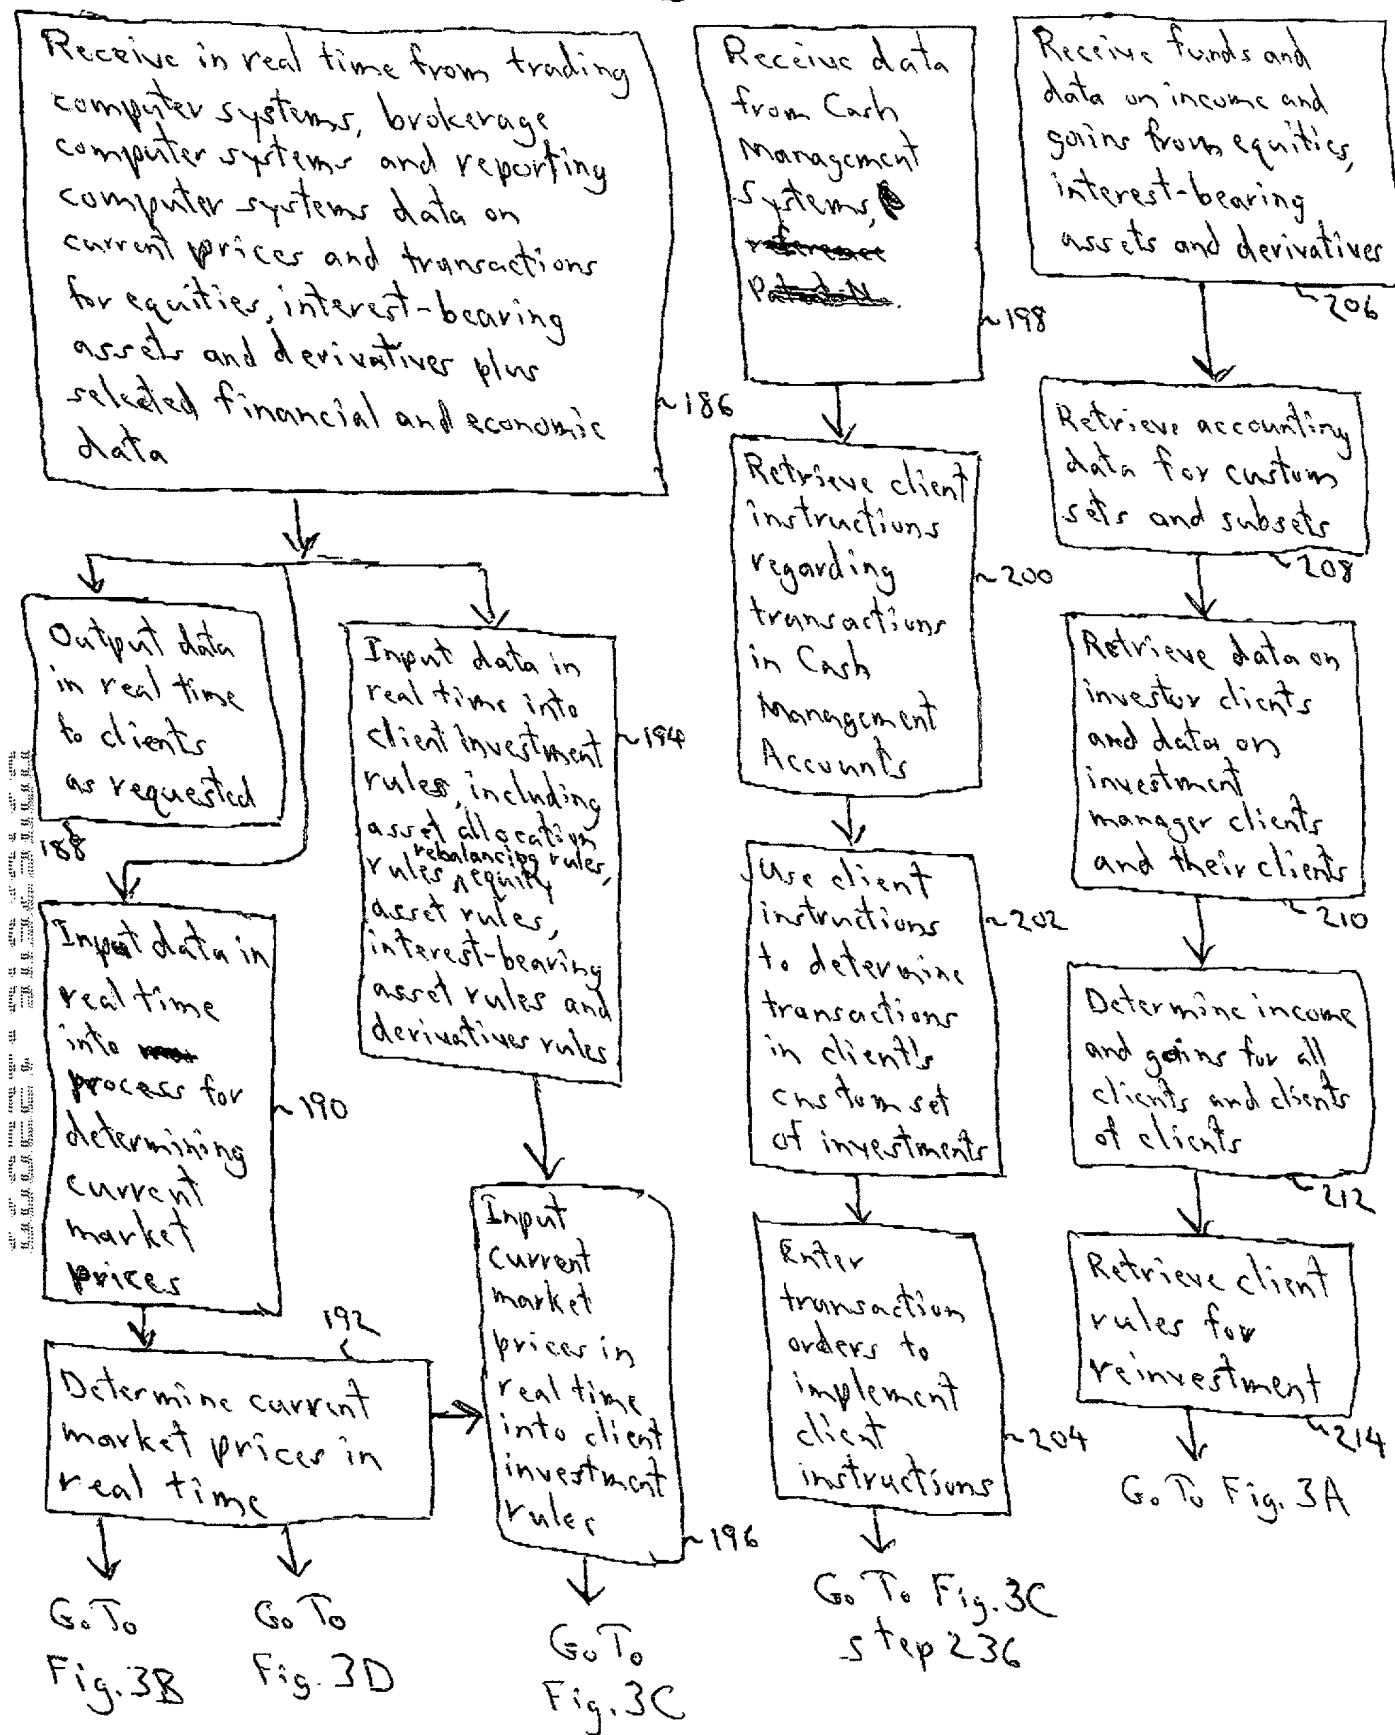 Receive in real time from trading
computer systems, brokerage
computer systems and reporting
computer systems data on
current prices and transactions
for equities, interest-bearing
assets and derivatives plus
selected financial and economic
data
~186
Output data
in real time
to clients
as requested
188
Input data in
real time
into
process for
determining
current
market
prices
~190
192
Determine current
market prices in
real time
Go To
Fig. 3B
Go To
Fig. 3D
Input data in
real time into
client investment
rules, including
asset allocation
rebalancing rules,
rules, equity
asset rules,
interest-bearing
asset rules and
derivatives rules
~194
Input
current
market
prices in
real time
into client
investment
rules
~196
Go To
Fig. 3C
Receive data
from Cash
Management
Systems,
~198
Retrieve client
instructions
regarding
transactions
in Cash
Management
Accounts
~200
Use client
instructions
to determine
transactions
in client's
custom set
of investments
~202
Enter
transaction
orders to
implement
client
instructions
~204
Go To Fig. 3C
step 236
Receive funds and
data on income and
gains from equities,
interest-bearing
assets and derivatives
~206
Retrieve accounting
data for custom
sets and subsets
~208
Retrieve data on
investor clients
and data on
investment
manager clients
and their clients
~210
Determine income
and gains for all
clients and clients
of clients
~212
Retrieve client
rules for
reinvestment
~214
Go To Fig. 3A